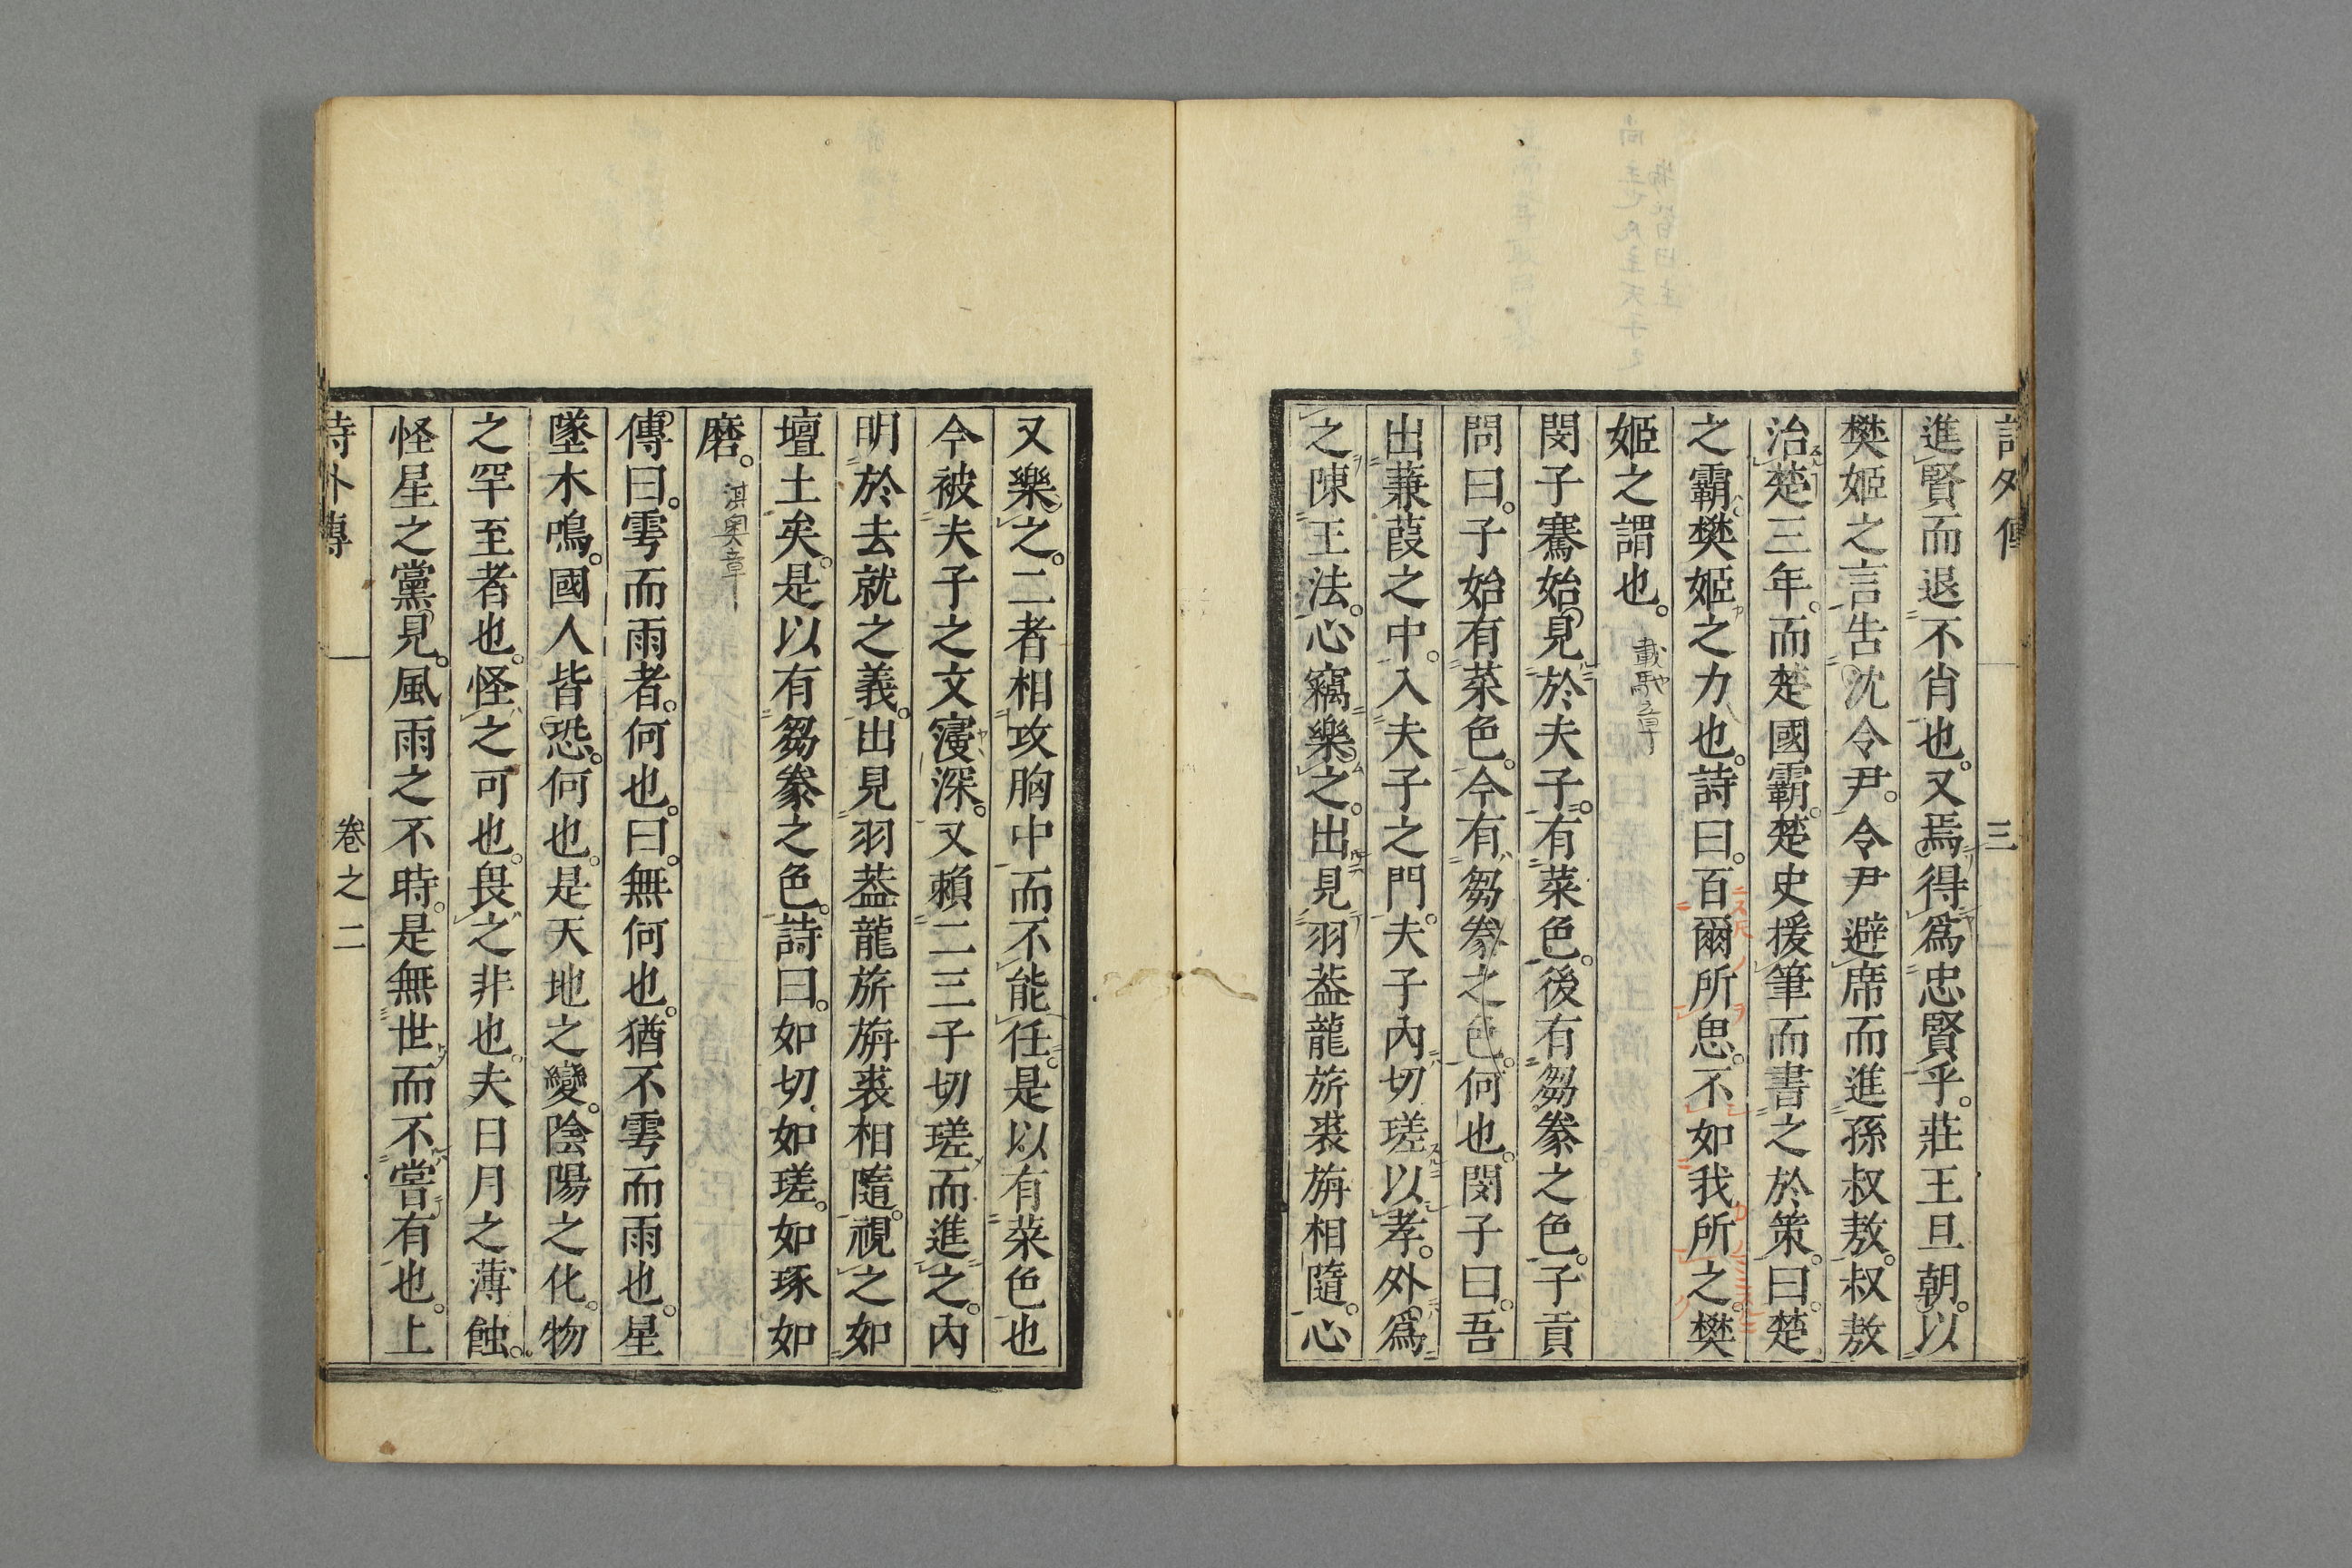 進賢而退不肖也。又焉得爲忠賢乎。莊王旦朝。以
樊姬之言告沈令尹。令尹避席而進孫叔敖。叔敖
治楚三年。而楚國霸。楚史援筆而書之於策。曰。楚
之霸。樊姬之力也。詩曰。百爾所思。不如我所之。樊
姬之謂也。載馳章
閔子騫始見於夫子。有菜色。後有芻豢之色。子貢
問曰。子始有菜色。今有芻豢之色。何也。閔子曰。吾
出蒹葭之中。入夫子之門。夫子內切瑳以孝。外爲
之陳王法。心竊樂之。出見羽葢龍旂裘旃相隨。心
又樂之。二者相攻胸中而不能任。是以有菜色也
今被夫子之文寖深。又賴二三子切瑳而進之。內
明於去就之義。出見羽葢龍旂旃裘相隨。視之如
壇土矣。是以有芻豢之色。詩曰。如切如瑳。如琢如
磨。淇奧章
傳曰。雩而雨者。何也。曰。無何也。猶不雩而雨也。星
墜木鳴。國人皆恐。何也。是天地之變。陰陽之化。物
之罕至者也。怪之可也。畏之非也。夫日月之薄蝕。
怪星之黨見。風雨之不時。是無世而不嘗有也。上
詩外傳
卷之二